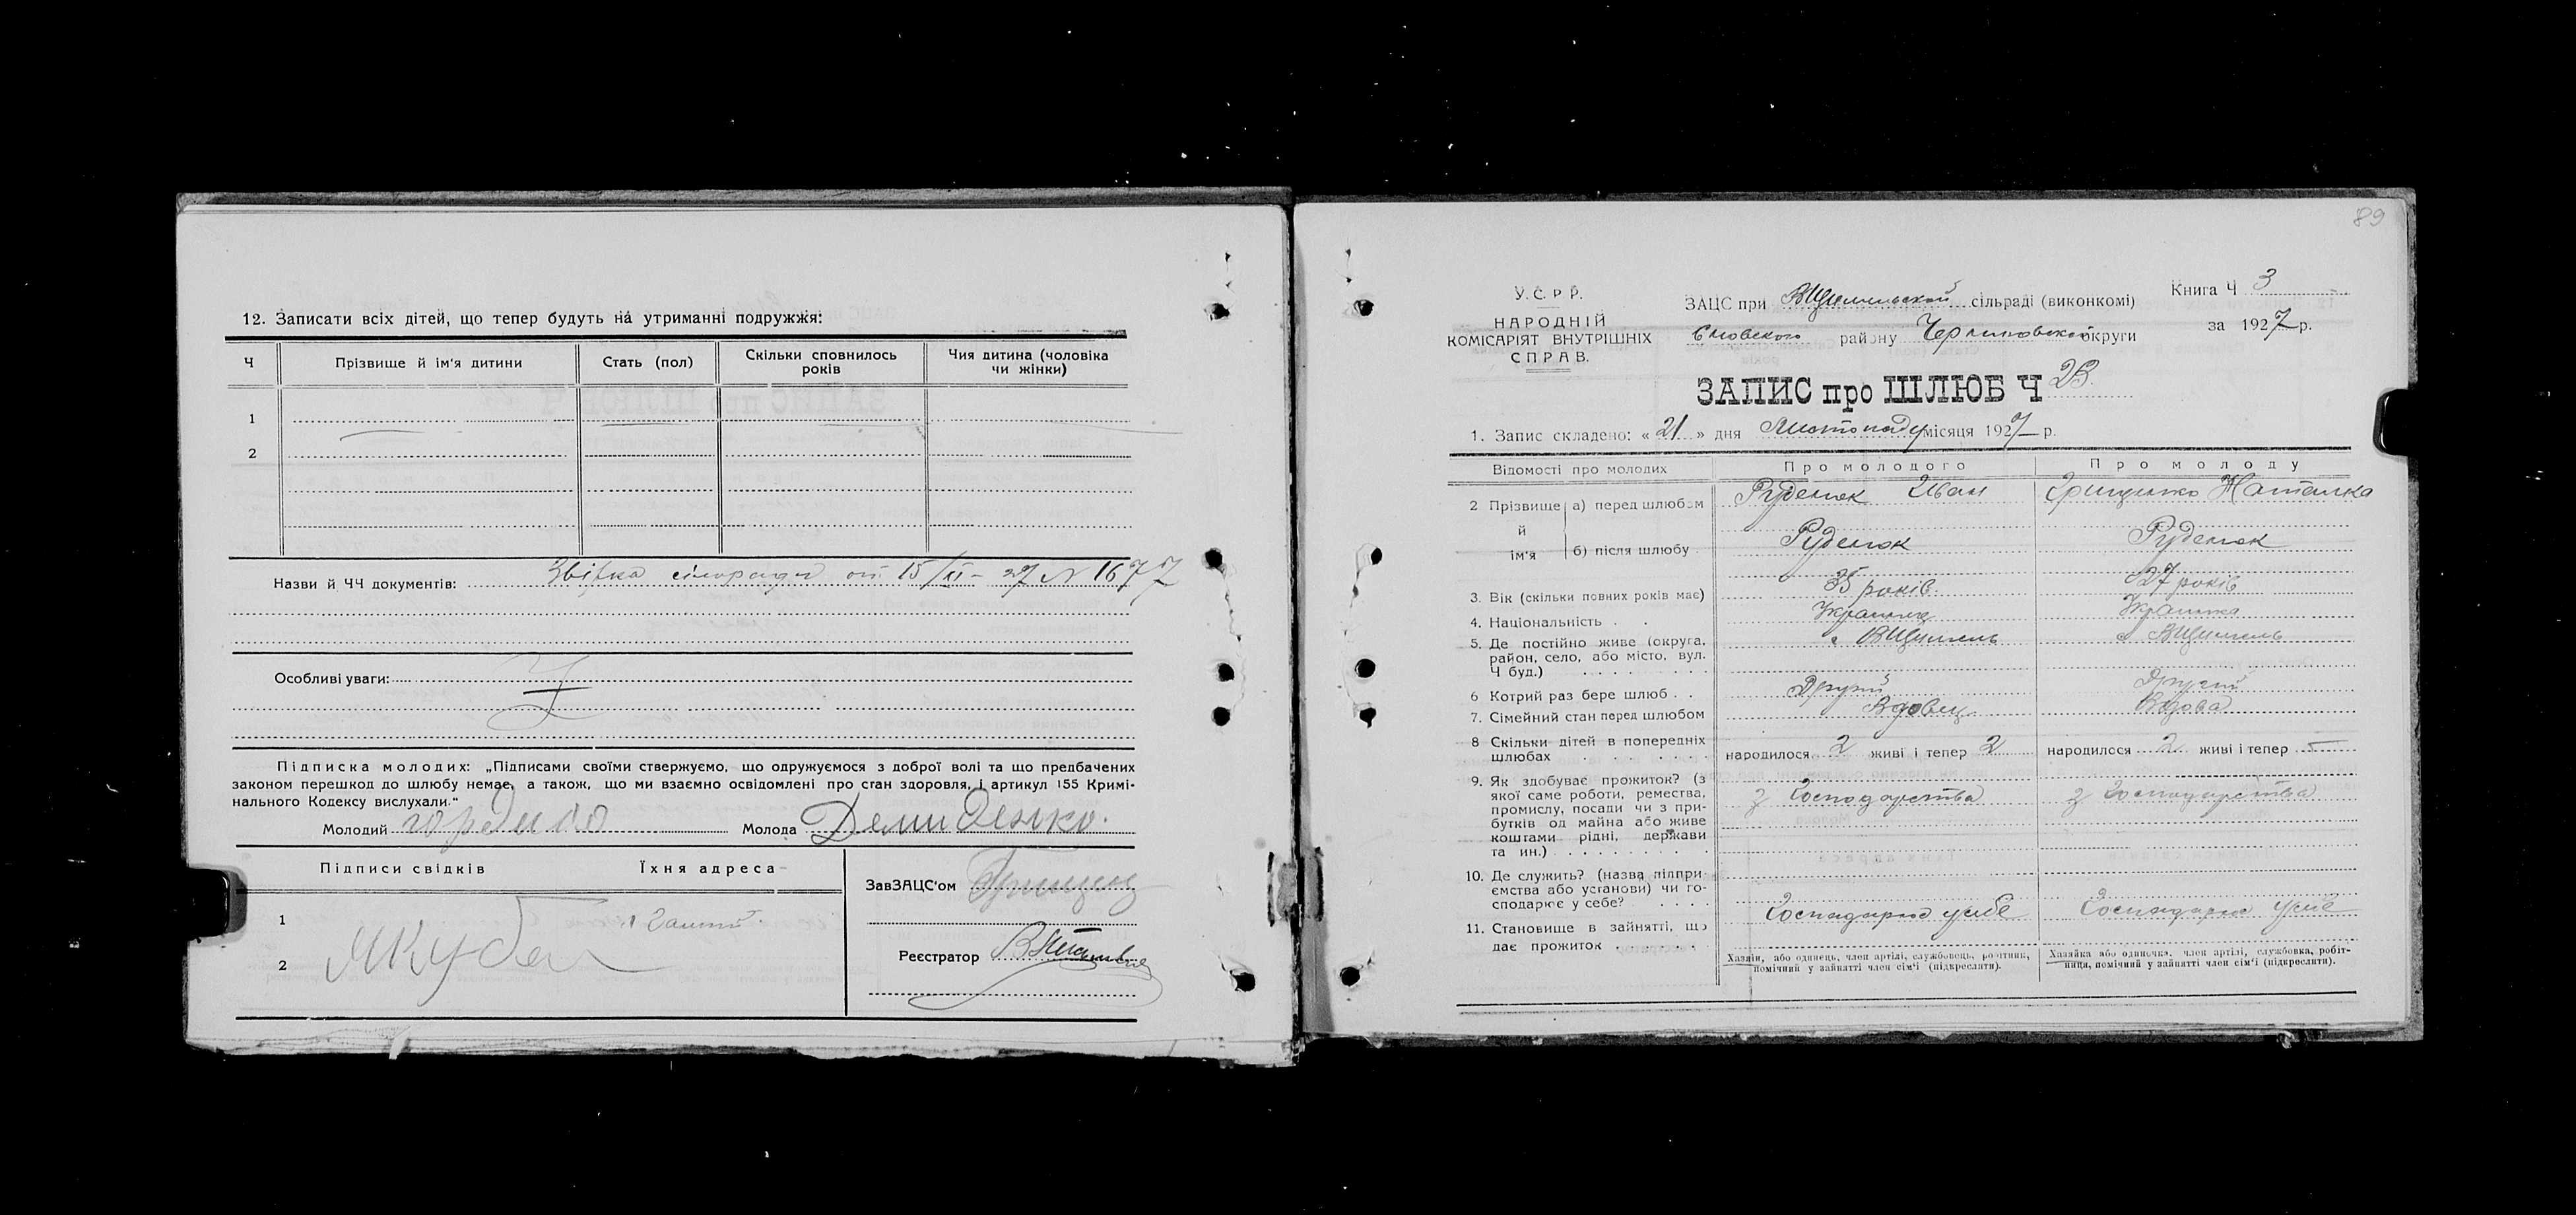 12. Записати всіх дітей, що тепер будуть на утриманні подружжя:
Ч Прізвище й ім'я дитини Стать (пол) Скільки сповнилось років Чия дитина (чоловіка чи жінки)
1
2
Назви й ЧЧ документів: сілоради от 15/XI - 27 N 1677
Особливі уваги:
Підписка молодих: „Підписами своїми стверджуємо, що одружуємося з доброї волі та що предбачених
законом перешкод до шлюбу немає, а також, що ми взаємно освідомлені про стан здоровля, і артикул 155 Кримі-
нального Кодексу вислухали."
Молодий Молода Демиденко.
Підписи свідків Їхня адреса
ЗавЗАЦС'ом
1
2
Якуба
Реєстратор
89
У.С.Р.Р.
НАРОДНІЙ
КОМІСАРІЯТ ВНУТРІШНІХ
СПРАВ.
ЗАЦС при сільраді (виконкомі)
Сновского району округи
Книга Ч 3
за 1927 р.
ЗАПИС про ШЛЮБ Ч 23
1. Запис складено: « 21 » дня Листопаду місяця 1927 р.
Відомості про молодих Про молодого Про молоду
2 Прізвище й ім'я а) перед шлюбом Руденок Иван Грищенко Наталка
б) після шлюбу Руденок Руденок
3. Вік (скільки повних років має) 35 років. 27 років
4. Національність Українка
5. Де постійно живе (округа,
район, село, або місто, вул.
Ч буд.)
с ВЩимель с ВЩимель
6 Котрий раз бере шлюб Другий Другий
7. Сімейний стан перед шлюбом Вдовец Вдова
8 Скільки дітей в попередніх
шлюбах
народилося 2 живі і тепер 2 народилося 2 живі і тепер —
9. Як здобуває прожиток? (з
якої саме роботи, ремества,
промислу, посади чи з при-
бутків од майна або живе
коштами рідні, держави
та ин.)
з Господарства з Господарства
10. Де служить? (назва підпри-
ємства або установи) чи го-
сподарює у себе?
Господарює у себе Господарює у себе
11. Становище в зайнятті, що
дає прожиток
Хазяїн, або одинець, член артілі, службовець, робітник,
помічний у зайнятті член сім'ї (підкреслити).
Хазяйка або одиначка, член артілі, службовка, робіт-
ниця, помічний у зайнятті член сім'ї (підкреслити).